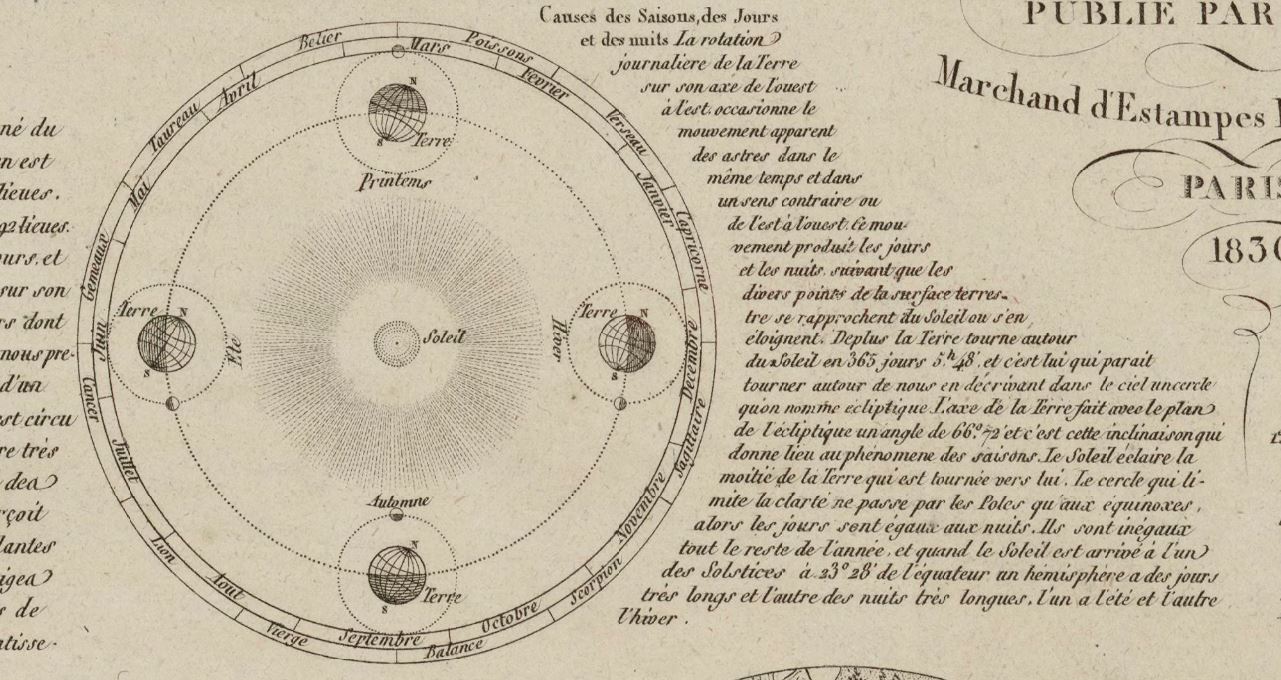 né du
en est
lieues.
92 lieues.
ours, et
sur son
rs dont
nous pre-
d'un
est circu
re très
dea
rçoit
lantes
igea
s de
atisse-
Belier
Mars
Poissons
Fevrier
Verseau
Janvier
Capricorne
Decembre
Sagittaire
Novembre
Scorpion
Octobre
Balance
Septembre
Vierge
Aout
Lion
Juillet
Cancer
Juin
Gemeaux
Mai
Taureau
Avril
N
Terre
S
Printems
Terre
N
S
Eté
Soleil
Hiver
Terre
N
S
Automne
N
S
Terre
Causes des Saisons, des Jours
et des nuits La rotation
journaliere de la Terre
sur son axe de l'ouest
à l'est, occasionne le
mouvement apparent
des astres dans le
même temps et dans
un sens contraire ou
de l'est à l'ouest. Ce mou-
vement produit les jours
et les nuits, suivant que les
divers points de la surface terres-
tre se rapprochent du Soleil ou s'en
éloignent. Deplus la Terre tourne autour
du Soleil en 365 jours 5h 48', et c'est lui qui parait
tourner autour de nous en décrivant dans le ciel un cercle
qu'on nomme ecliptique L'axe de la Terre fait avec le plan
de l'écliptique un angle de 66° 72' et c'est cette inclinaison qui
donne lieu au phénomene des saisons. Le Soleil éclaire la
moitié de la Terre qui est tournée vers lui. Le cercle qui li-
mite la clarté ne passe par les Poles qu'aux équinoxes,
alors les jours sont égaux aux nuits. Ils sont inégaux
tout le reste de l'année, et quand le Soleil est arrivé à l'un
des Solstices à 23° 28' de l'équateur un hémisphère a des jours
très longs et l'autre des nuits très longues, l'un a l'été et l'autre
l'hiver.
PUBLIÉ PAR
Marchand d'Estampes
PARIS
1830